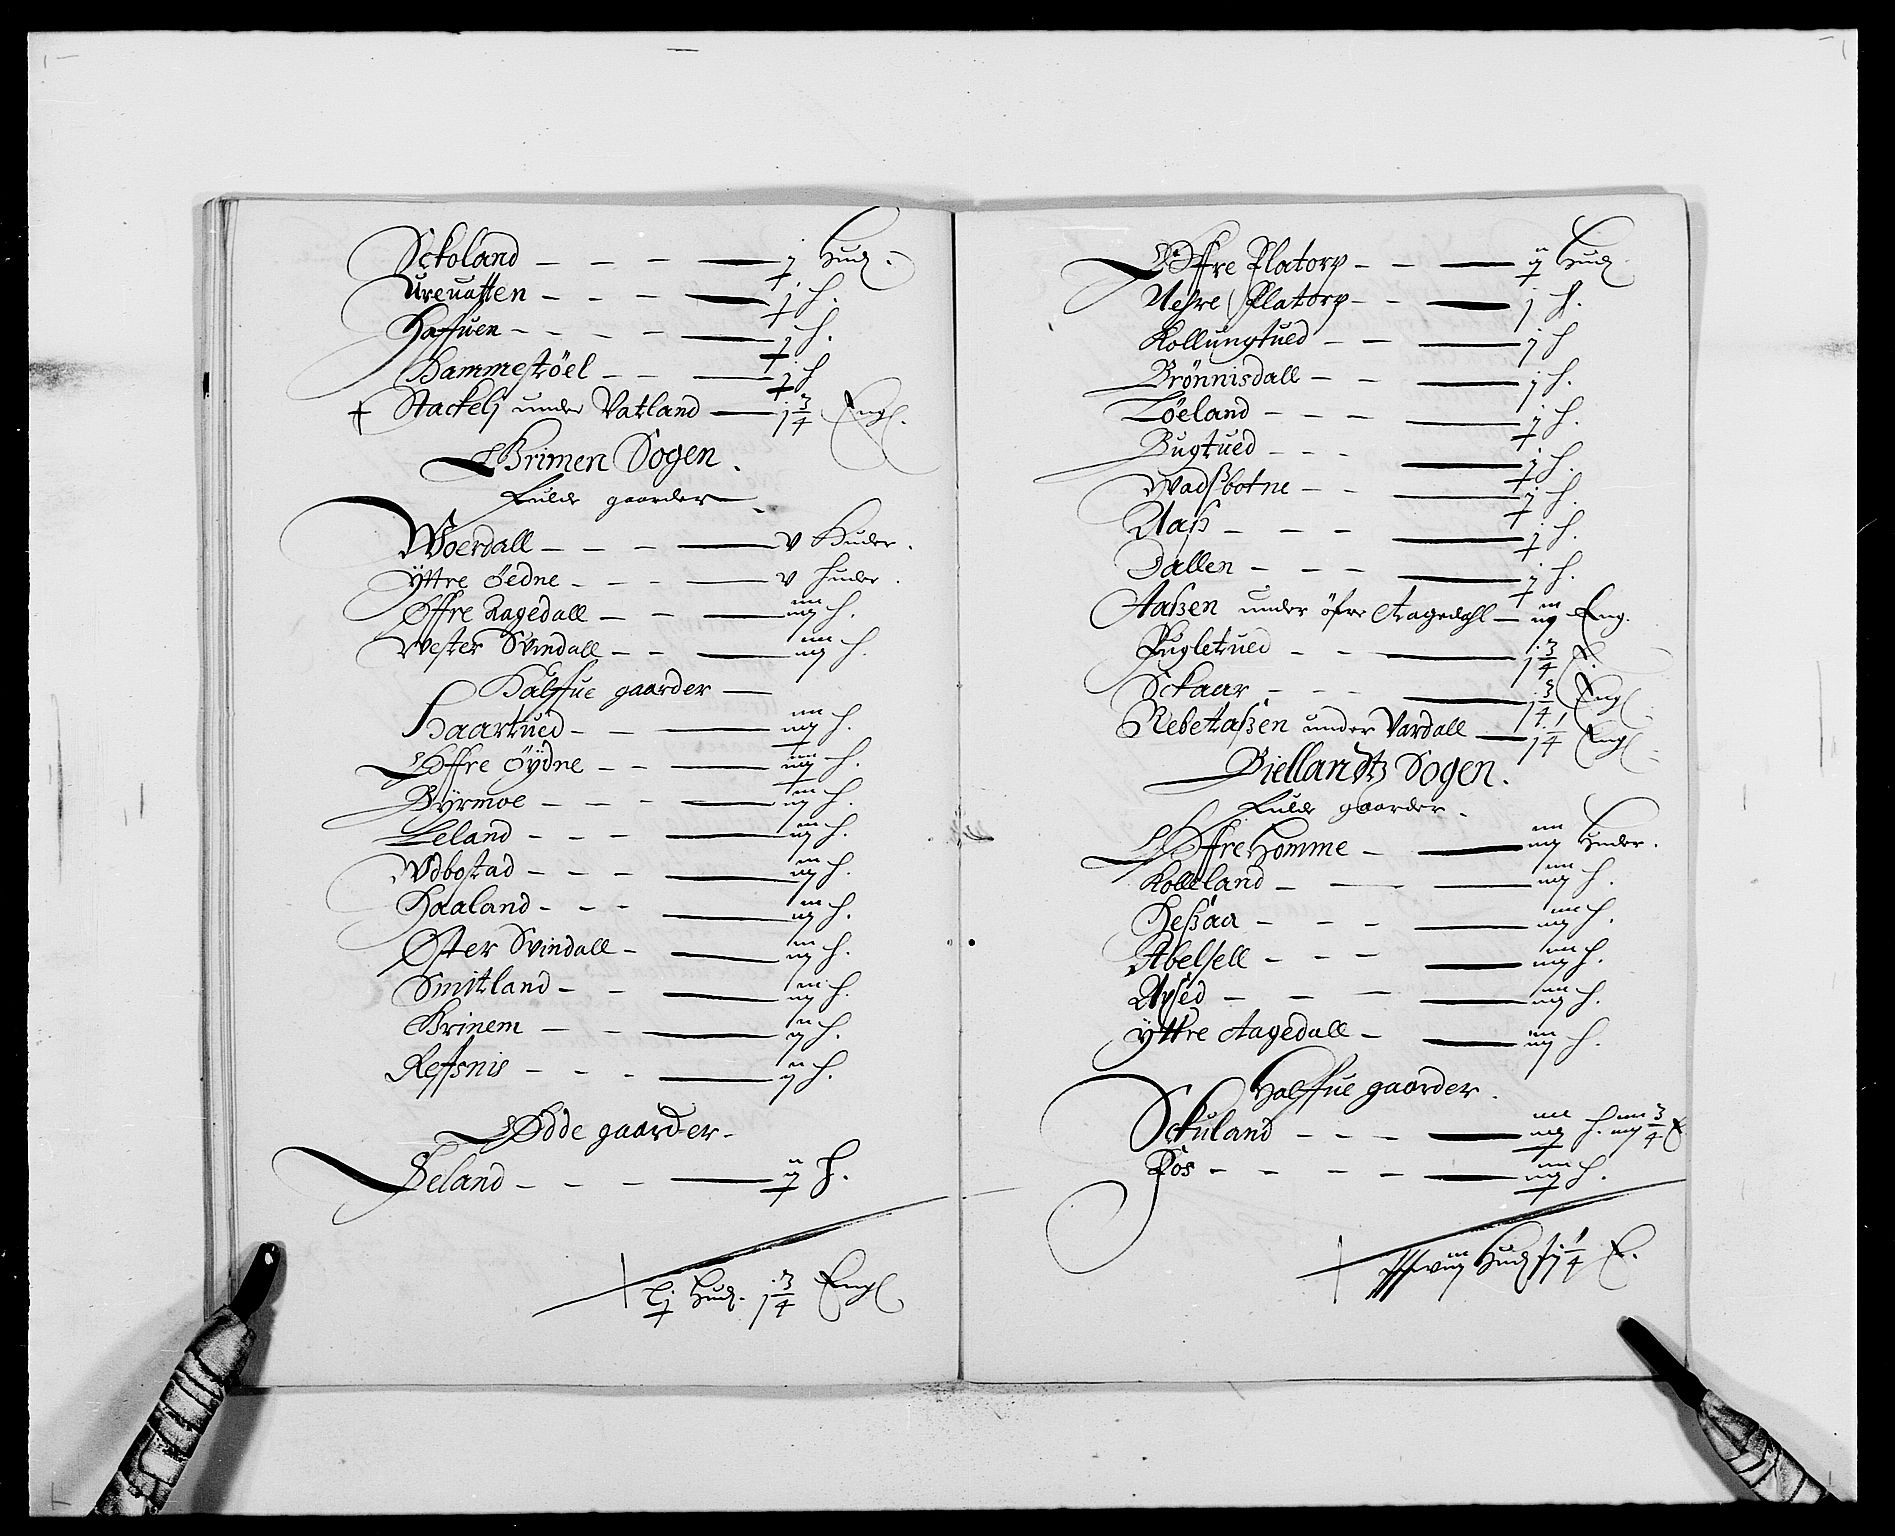 Sckoland — j Hud.
Ureuatten — j h.
Haffuen — j h.
Hammestöel — j h
† Stackelj under Vatland — j 3/4 Engl.
Grimen Sogen.
Fulde gaarder
Woerdall — v Huder.
Yttre öedne — v huder.
Øffre Aagedall — iiij h.
Wester Svindall — iiij h.
Halffue gaarder
Haartued — iiij h.
Øffre Öÿdne — iiij h.
Bÿrmoe — iij h.
Leland — iij h.
Udbostad — iij h.
Haaland — iij h.
Øster Svindall — iij h.
Smitland — iij h.
Brinem — ij h.
Reffsnis — ij h.
Ødde gaarder.
Feland — ij h.
Lj Hud. j 3/4 Engl
Øffre Platorp — ij Hud.
Nehre Platorp — j h.
Kollungtued — j h
Brönnisdall — j h.
Löeland — j h.
Bugtued — j h.
Wadsbotne — j h.
Aaß — j h.
Dallen — j h.
Aaßen under öfre Aagedahl — iij Eng.
Fugletued — j 3/4 E.
Sckaar — j 3/4 Engl
Rebekaßen under Vardall — j 1/4 Engl
Biellandtz Sogen.
Fulde gaarder.
Øffre Homme — iiij Huder.
Kolleland — iiij h.
Heßaa — iiij h.
Abelsell — iiij h.
Apsed — iiij h.
Yttre Aagedall — iiij h.
Halffue gaarder.
Sckuland — iiij h. iiij 3/4 E
Fos — iiij h.
Hud 1/4 E.